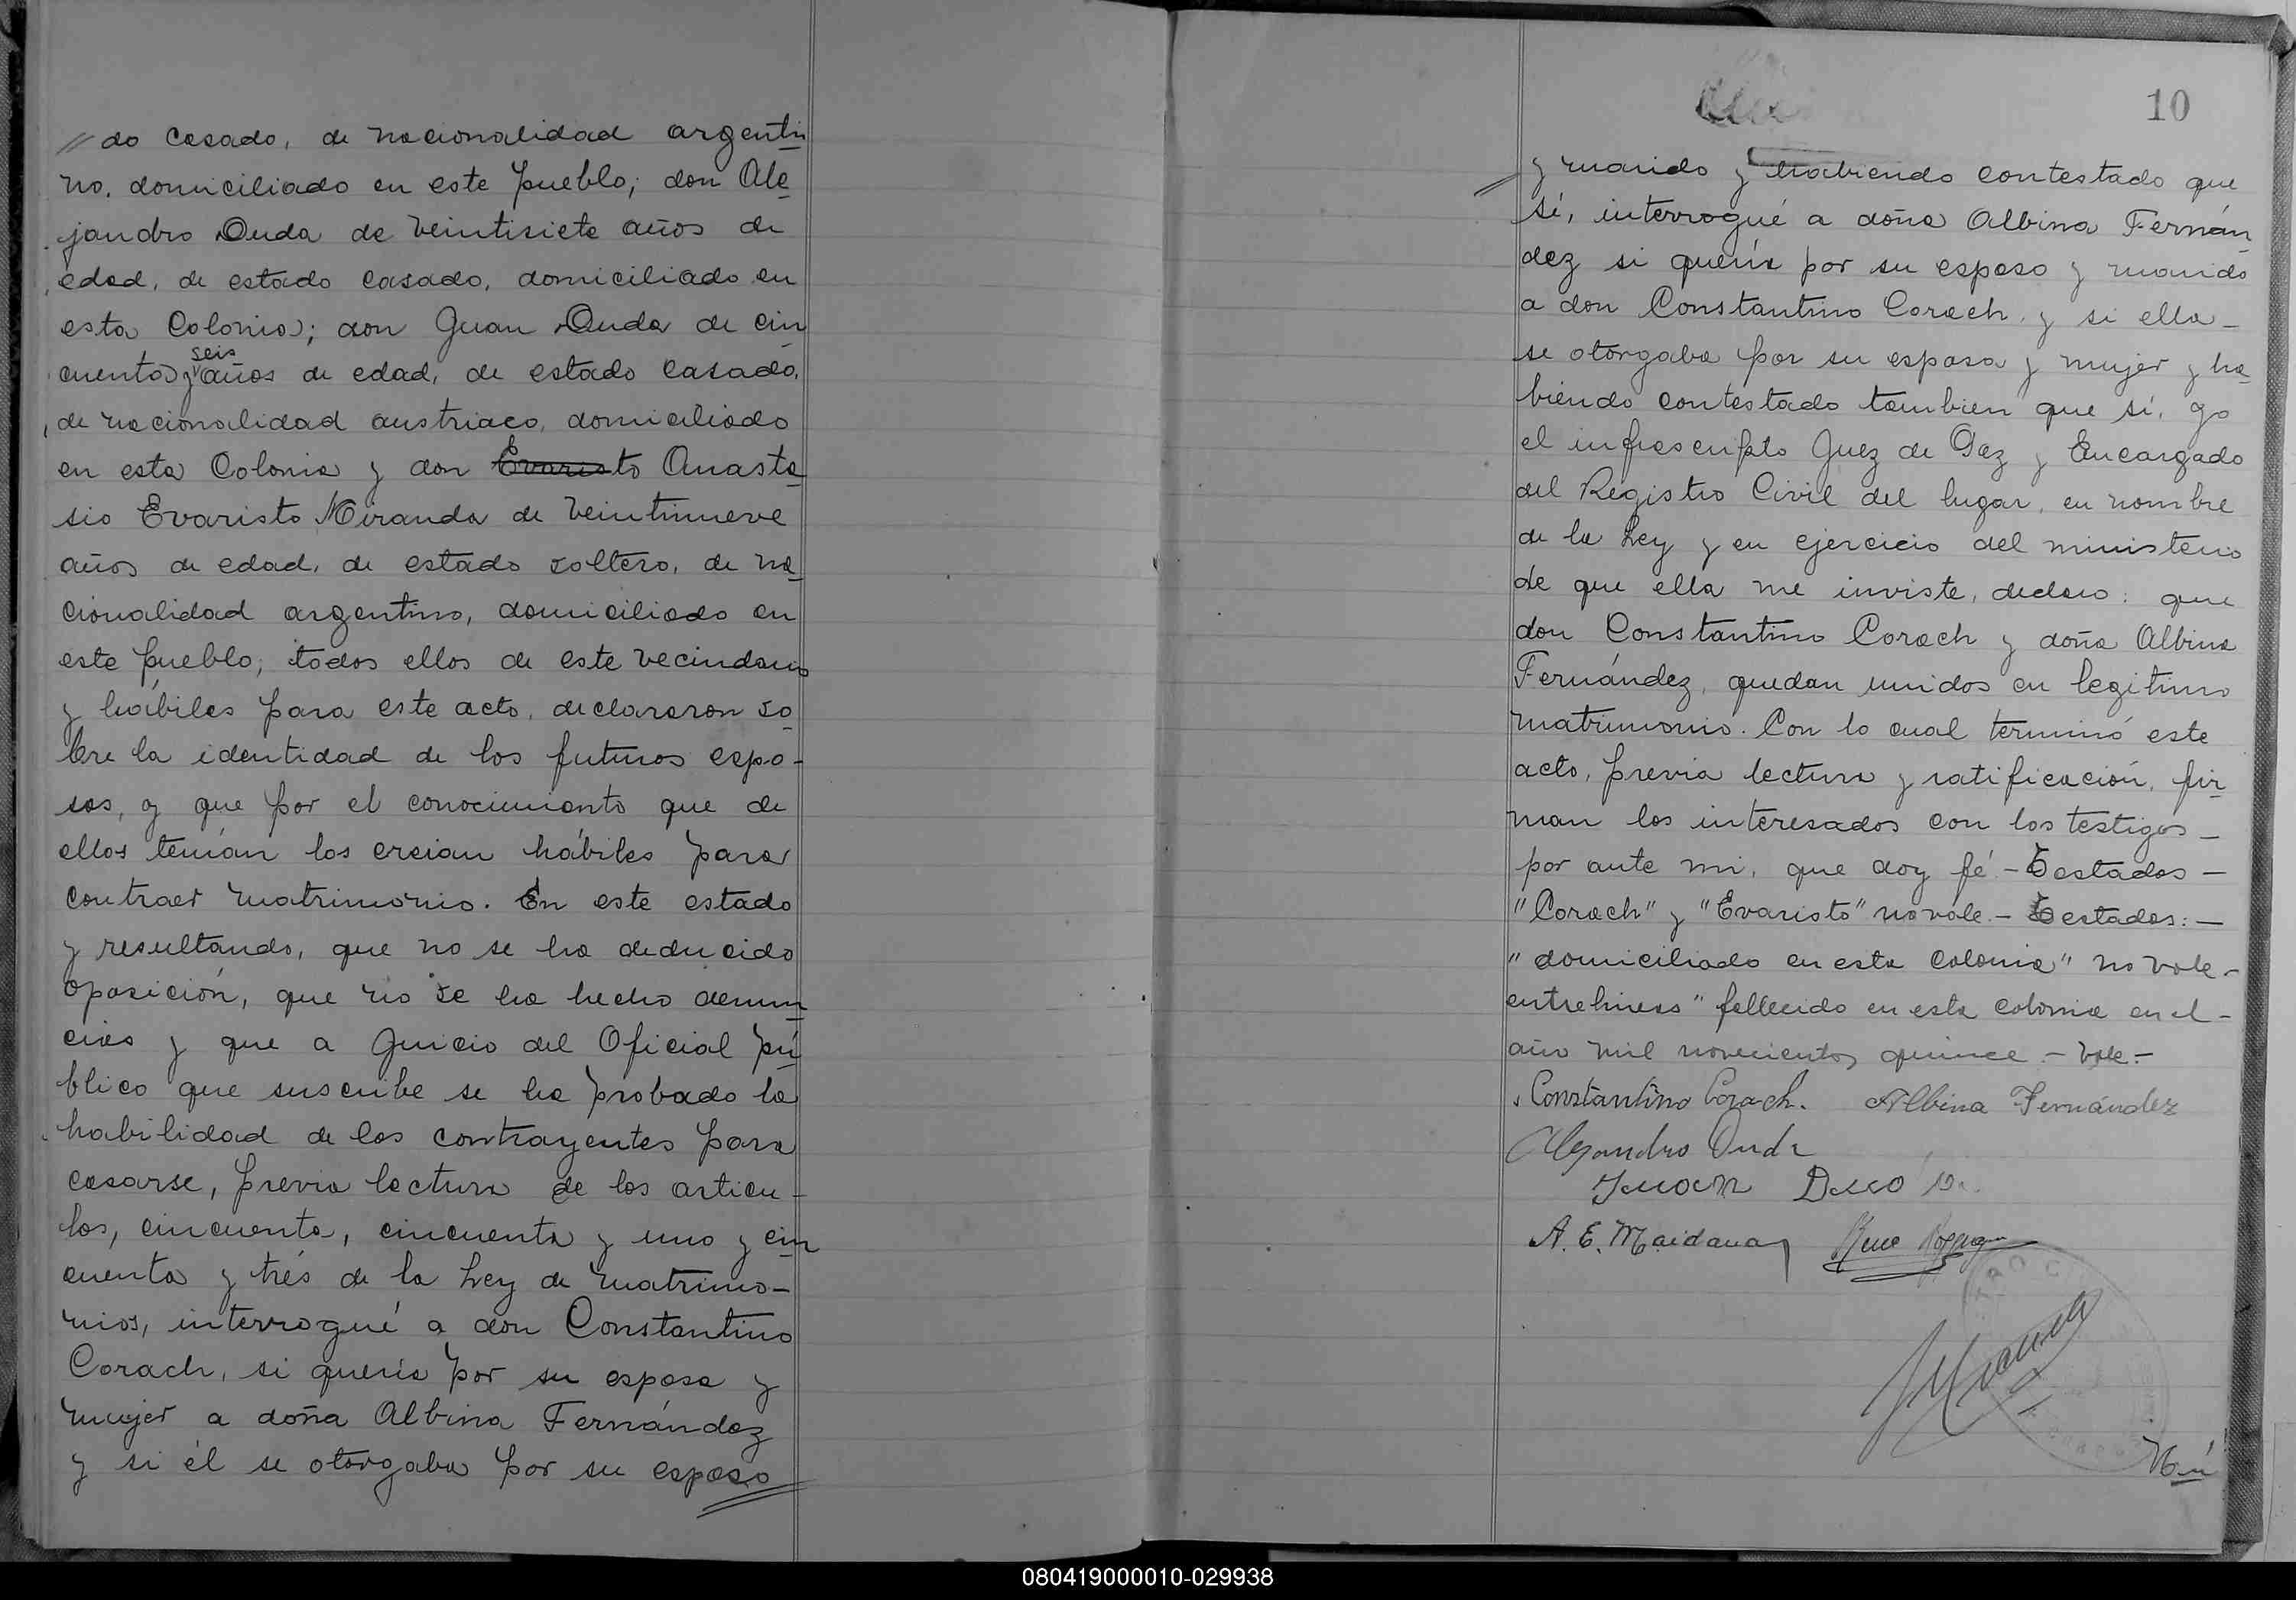 // do casado, de nacionalidad argenti
no, domiciliado en este pueblo; don Ale
jandro Duda de veintisiete años de
edad, de estado casado, domiciliado en
esta Colonia; don Juan Duda de cin
cuenta y seis años de edad, de estado casado,
de nacionalidad austriaco, domiciliado
en esta Colonia y don Evaristo Anasta
sio Evaristo Miranda de veintinueve
años de edad, de estado soltero, de na
cionalidad argentino, domiciliado en
este pueblo; todos ellos de este vecindario
y hábiles para este acto, declararon so
bre la identidad de los futuros espo-
sos, y que por el conocimiento que de
ellos tenían los creian hábiles para
contraer matrimonio. En este estado
y resultando, que no se ha deducido
oposición, que no se ha hecho denun
cias y que a juicio del Oficial pú
blico que suscribe se ha probado la
habilidad de los contrayentes para
casarse, previa lectura de los articu-
los, cincuenta, cincuenta y uno y cin
cuenta y trés de la Ley de matrimo-
nios, interrogué a don Constantino
Corach, si quería por su esposa y
mujer a doña Albina Fernández
y si él se otorgaba por su esposo
10
// y marido y habiendo contestado que
sí, interrogué a doña Albina Fernán
dez si quería por su esposo y marido
a don Constantino Corach y si ella-
se otorgaba por su esposa y mujer y ha
biendo contestado tambien que sí, yo
el infrascripto Juez de Paz y Encargado
del Registro Civil del lugar, en nombre
de la Ley y en ejercicio del ministerio
de que ella me inviste, declaro: que
don Constantino Corach y doña Albina
Fernández, quedan unidos en legitimo
matrimonio. Con lo cual terminó este
acto, previa lectura y ratificación, fir
man los interesados con los testigos-
por ante mi, que doy fé.- Testados-
"Corach" y "Evaristo" no vale.- Testados:-
"domiciliado en esta colonia" no vale-
entrelineas "fallecido en esta colonia en el-
año mil novecientos quince.- Vale.-
Constantino Corach. Albina Fernández
Alejandro Duda
Juan Duda
A. E. Maidana
Nú
080419000010-029938